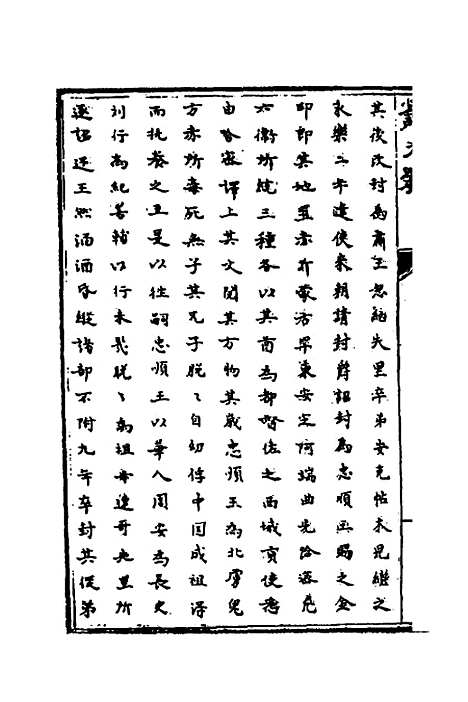 其後改封為肅王忽納失里卒弟安克帖木兒繼之
永樂二年遣使來朝請封爵詔封為忠順王賜之金
印即其地置赤斤蒙古罕東安定阿端曲先哈密凡
六衞所統三種各以其酋為都督佐之西域貢使悉
由哈密譯上其文閱其方物其歲忠順王為北虜鬼
方赤所毒死無子其兄子脫〻自幼俘中国成祖得
而托養之至是以往嗣忠順王以華人周安為長史
刘行為紀善輔以行未幾脫〻為祖母速哥失里所
逐詔还王然湎酒昏縱諸部不附九年卒封其從弟